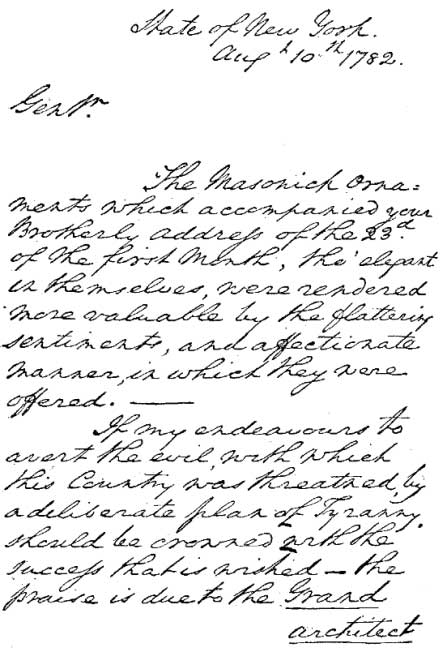 State of New York.
Augt 10th 1782.
Gentn.
The Masonick Orna=
ments which accompanied your
Brotherly address of the 23d.
of the first Month, tho' elegant
in themselves, were rendered
more valuable by the flattering
sentiments, and affectionate
manner, in which they were
offered. —
If my endeavours to
avert the evil, with which
this Country was threatned, by
a deliberate plan of Tyranny,
should be crowned with the
success that is wished — the
praise is due to the Grand
architect